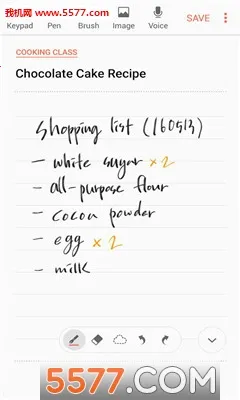 我机网
www.5577.com
SAVE
Keypad Pen Brush Image Voice
COOKING CLASS
Chocolate Cake Recipe
Shopping list (160513)
- white sugar × 2
- all-purpose flour
- cocoa powder
- egg × 2
- milk
5577.com